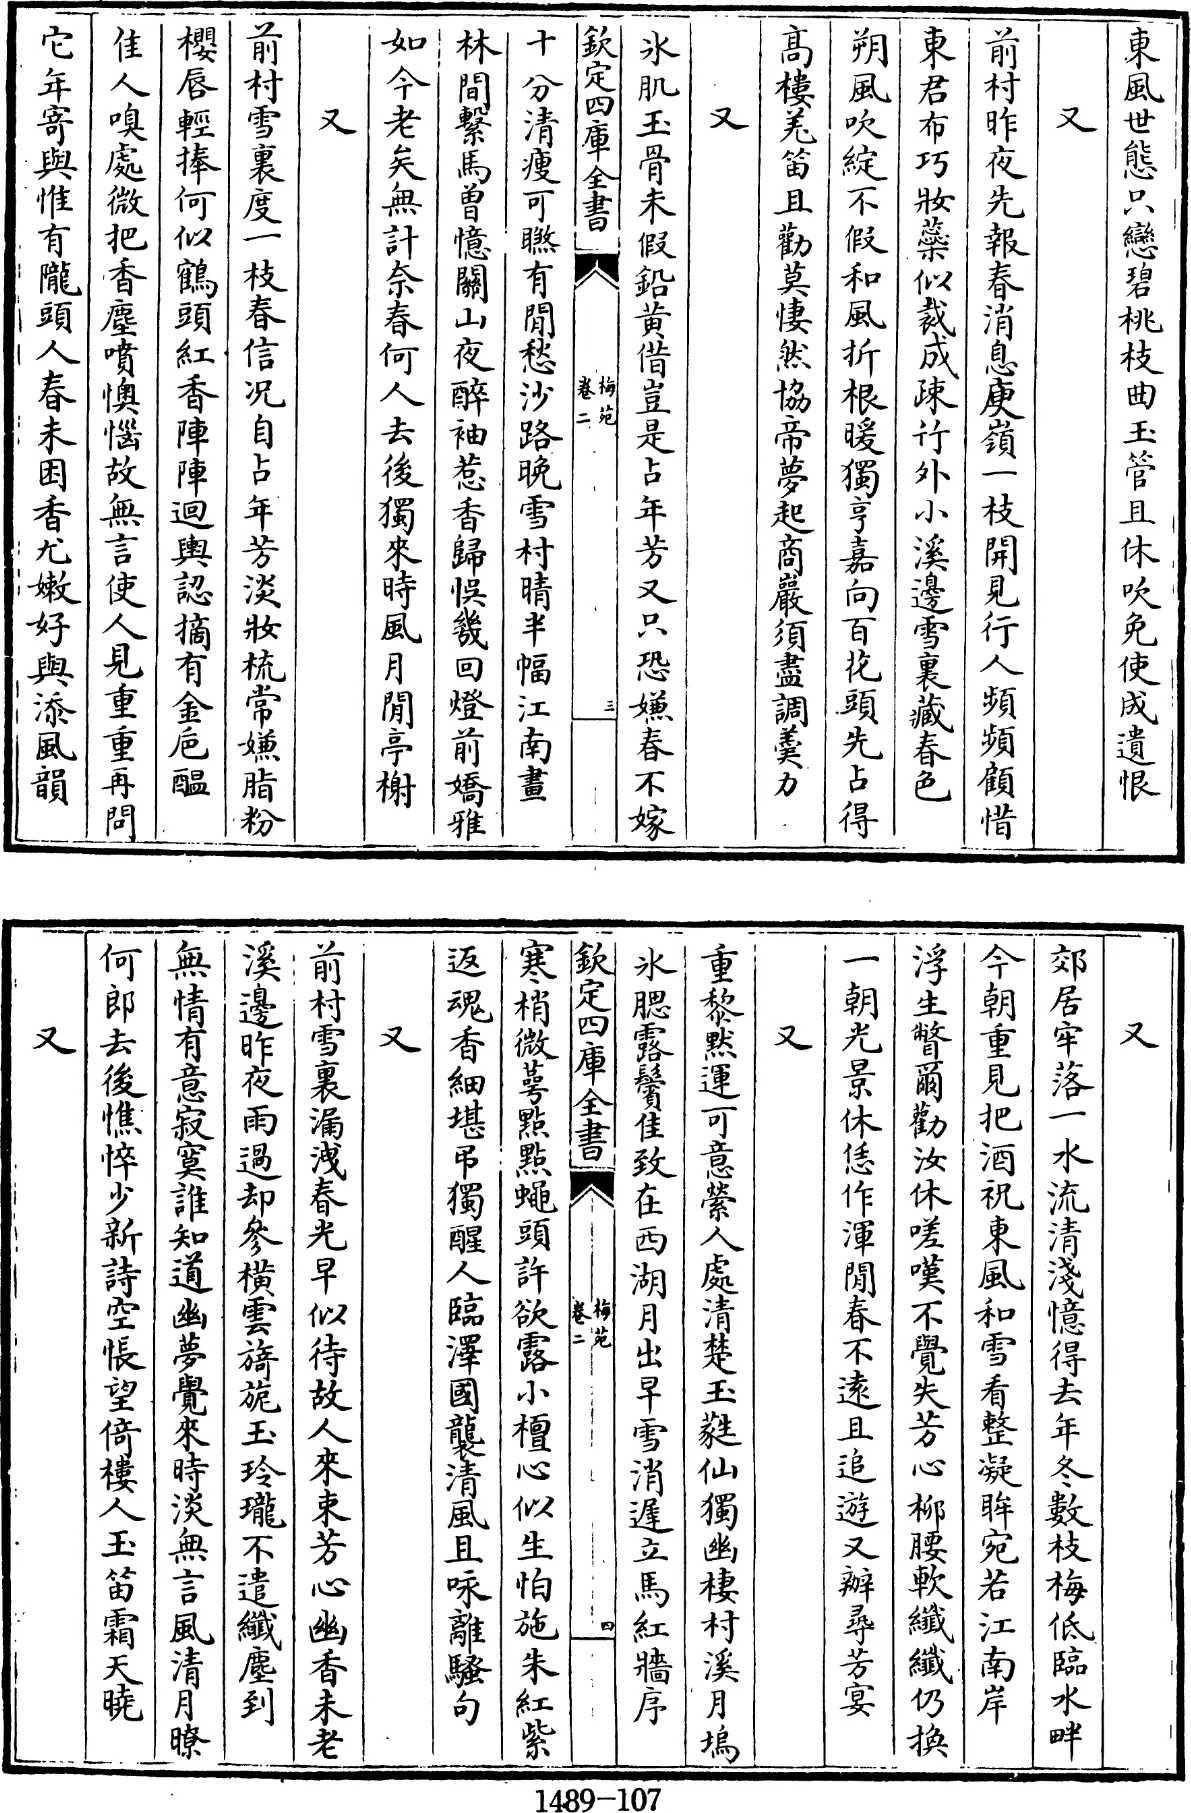 東風世態只戀碧桃枝曲玉管且休吹免使成遺恨
又
前村昨夜先報春消息庾嶺一枝開見行人頻頻顧惜
東君布巧妝蘂似裁成疎竹外小溪邊雪裏藏春色
朔風吹綻不假和風折根暖獨亨嘉向百花頭先占得
高樓羗笛且勸莫悽然協帝夢起商巖須盡調羮力
又
氷肌玉骨未假鉛黄借豈是占年芳又只恐嫌春不嫁
欽定四庫全書
梅苑
卷二
三
十分清瘦可㬠有閒愁沙路晚雪村晴半幅江南畫
林間繫馬曽憶關山夜醉袖惹香歸悞幾回燈前嬌雅
如今老矣無計奈春何人去後獨來時風月閒亭榭
又
前村雪裏度一枝春信况自占年芳淡妝梳常嫌脂粉
櫻唇輕捧何似鶴頭紅香陣陣迴輿認摘有金巵醖
佳人嗅處微把香塵噴懊惱故無言使人見重重再問
它年寄與惟有隴頭人春未困香尤嫩好與添風韻
又
郊居牢落一水流清淺憶得去年冬數枝梅低臨水畔
今朝重見把酒祝東風和雪看整凝眸宛若江南岸
浮生瞥爾勸汝休嗟嘆不覺失芳心柳腰軟纖纖仍換
一朝光景休恁作渾閒春不逺且追遊又辦尋芳宴
又
重黎黙運可意縈人處清楚玉蕤仙獨幽棲村溪月塢
氷腮露鬢佳致在西湖月出早雪消遲立馬紅牆序
欽定四庫全書
梅苑
卷二
四
寒梢微萼點點蠅頭許欲露小檀心似生怕施朱紅紫
返魂香細堪弔獨醒人臨澤國襲清風且咏離騷句
又
前村雪裏漏洩春光早似待故人來束芳心幽香未老
溪邊昨夜雨過却參橫雲旖旎玉玲瓏不遣纎塵到
無情有意寂寞誰知道幽夢覺來時淡無言風清月瞭
何郎去後憔悴少新詩空悵望倚樓人玉笛霜天曉
又
1489-107